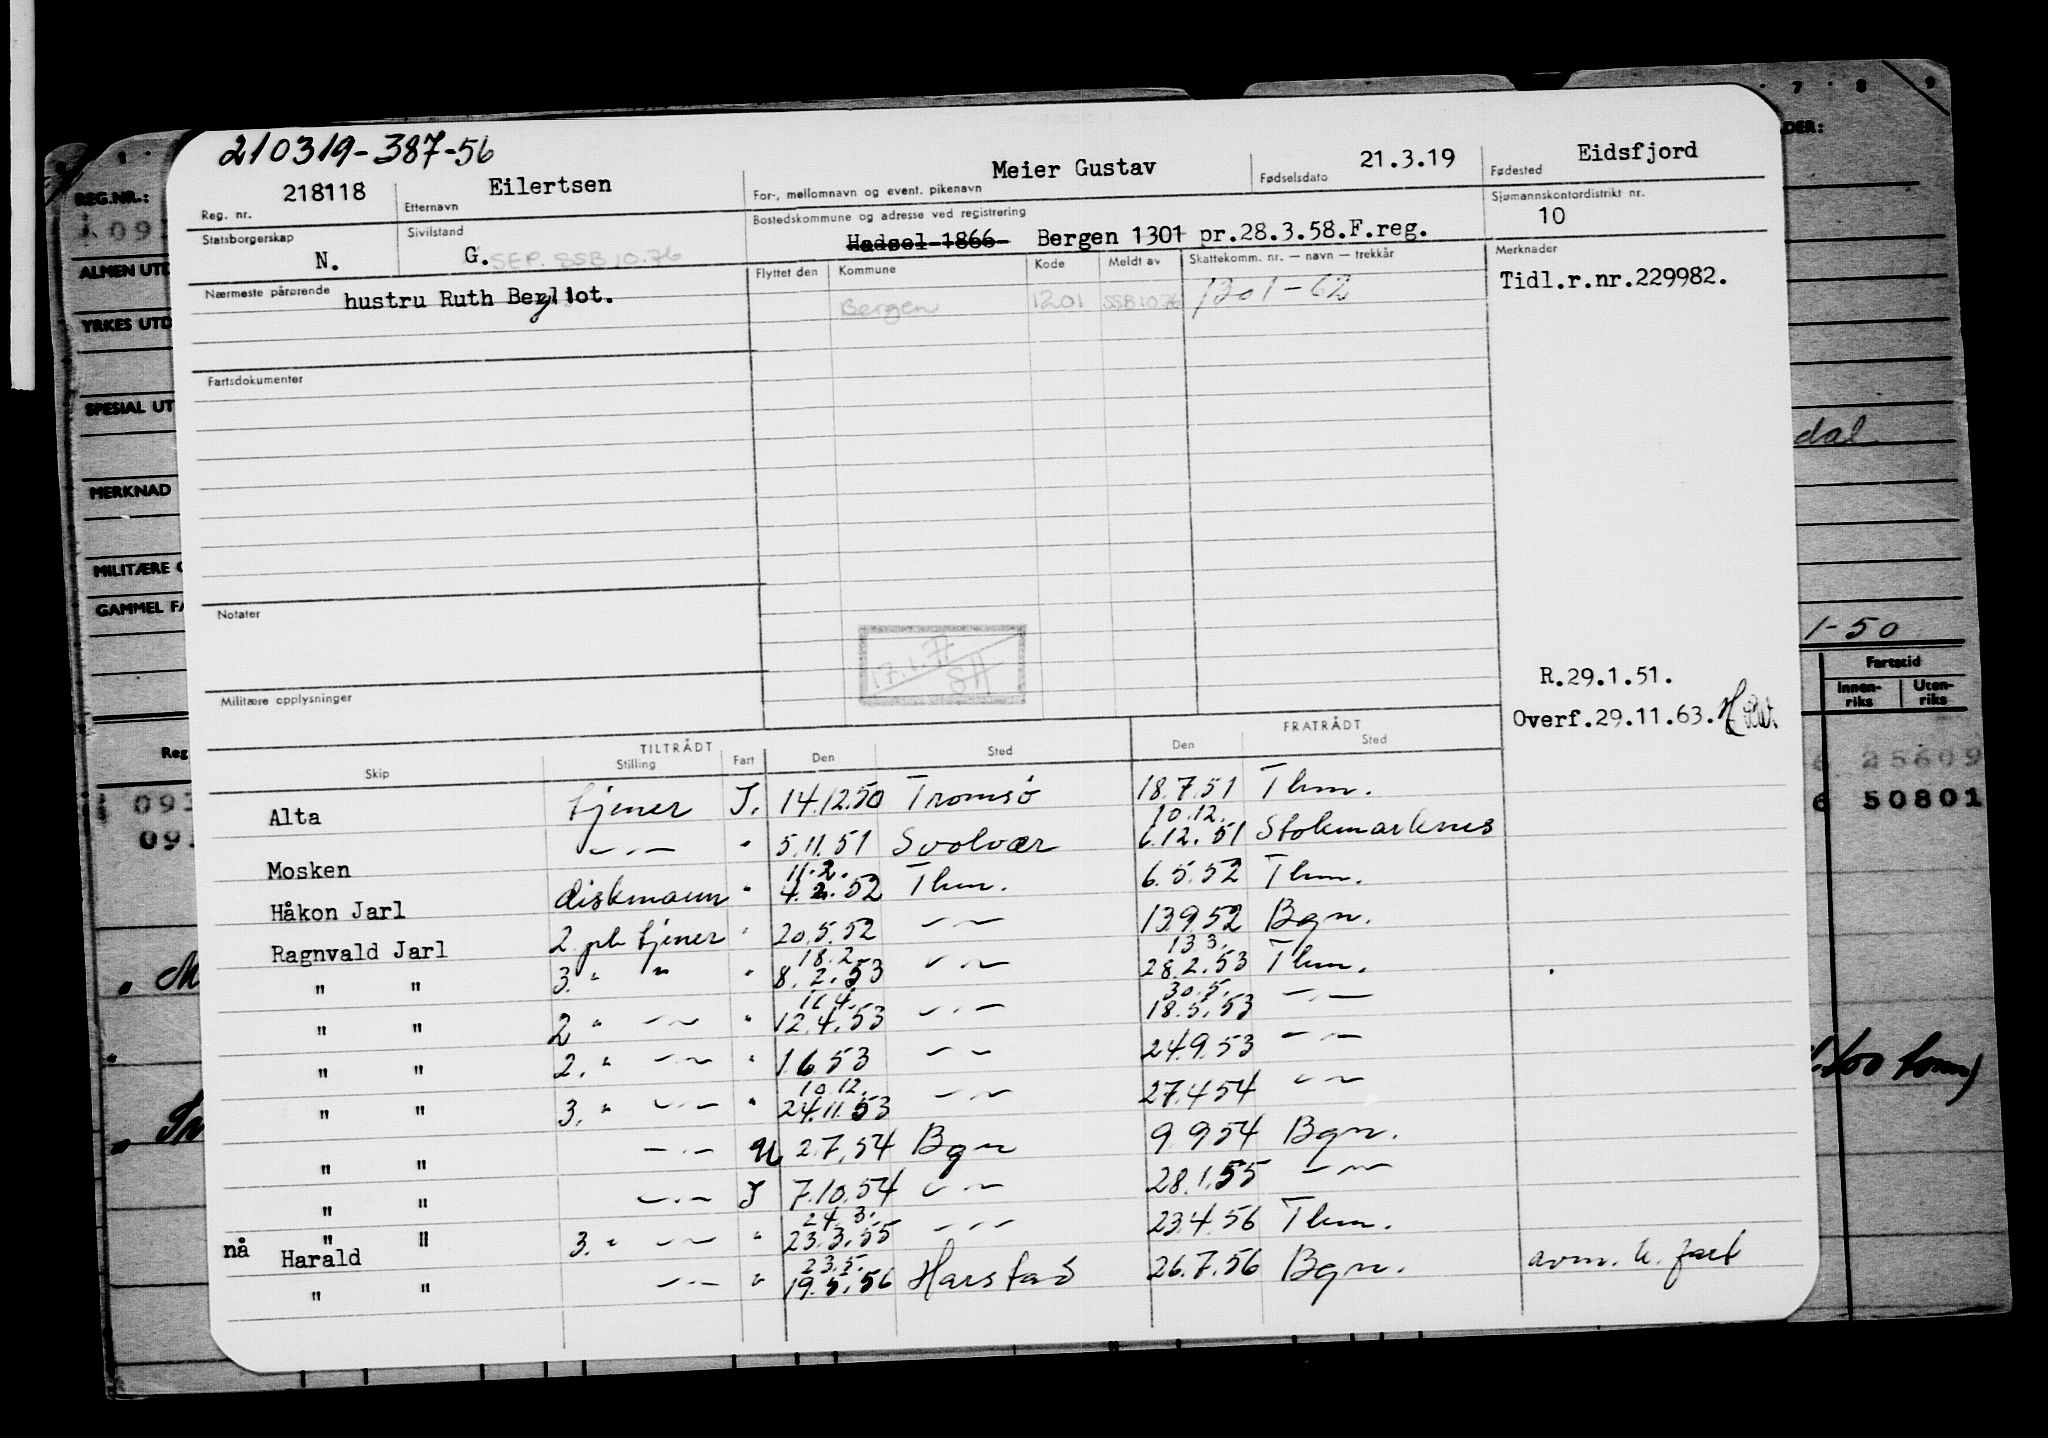 210319-387-56
218118 Eilertsen Meier Gustav 21.3.19 Eidsfjord
Reg. nr. Etternavn For-, mellomnavn og event. pikenavn Fødselsdato Fødested
Statsborgerskap Sivilstand Bostedskommune og adresse ved registrering Sjømannskontordistrikt nr.
N. G. SEP. SSB 10.76 Hadsel 1866 Bergen 1301 pr.28.3.58.F.reg. 10
Nærmeste pårørende Flyttet den Kommune Kode Meldt av Skattekomm. nr. — navn — trekkår Merknader
hustru Ruth Bergliot. Bergen 1201 SSB 10.76 1301-62 Tidl.r.nr.229982.
Fartsdokumenter
Notater
17.1.77 SA
Militære opplysninger
R.29.1.51.
Overf.29.11.63.
TILTRÅDT FRATRÅDT
Skip Stilling Fart Den Sted Den Sted
Alta tjener I. 14.12.50 Tromsö 18.7.51 Thm.
10.12.
Mosken — " — " 5.11.51 Svolvær 6.12.51 Stokmarknes
11.2.
Håkon Jarl diskmann " 4.2.52 Thm. 6.5.52 Thm.
Ragnvald Jarl 2 pl. tjener " 20.5.52 — " — 13.9.52 Bgn.
18.2. 13 3.
" " 3. " " " 8.2.53 — " — 28.2.53 Thm.
11.4. 30.5.
" " 2 " — " — " 12.4.53 — " — 18.5.53 — " —
" " 2. " — " — " 1.6.53 — " — 24.9.53 — " —
10.12.
" " 3. " — " — " 24.11.53 — " — 27.4.54 — " —
" " — " — U 2.7.54 Bgn 9.9.54 Bgn.
" " — " — I 7.10.54 — " — 28.1.55 — " —
24.3.
" " 3. " — " — " 23.3.55 — " — 23.4.56 Thm.
nå Harald
23.5.
" " — " — " 19.5.56 Harstad 26.7.56 Bgn.
REG.NR.:
ALMEN UTD
YRKES UTD
SPESIAL UT
MERKNAD
MILITÆRE
GAMMEL FA
Reg
093
7 8 9
DER:
dal
1-50
Fartstid
Innen-riks Uten-riks
25609
50801